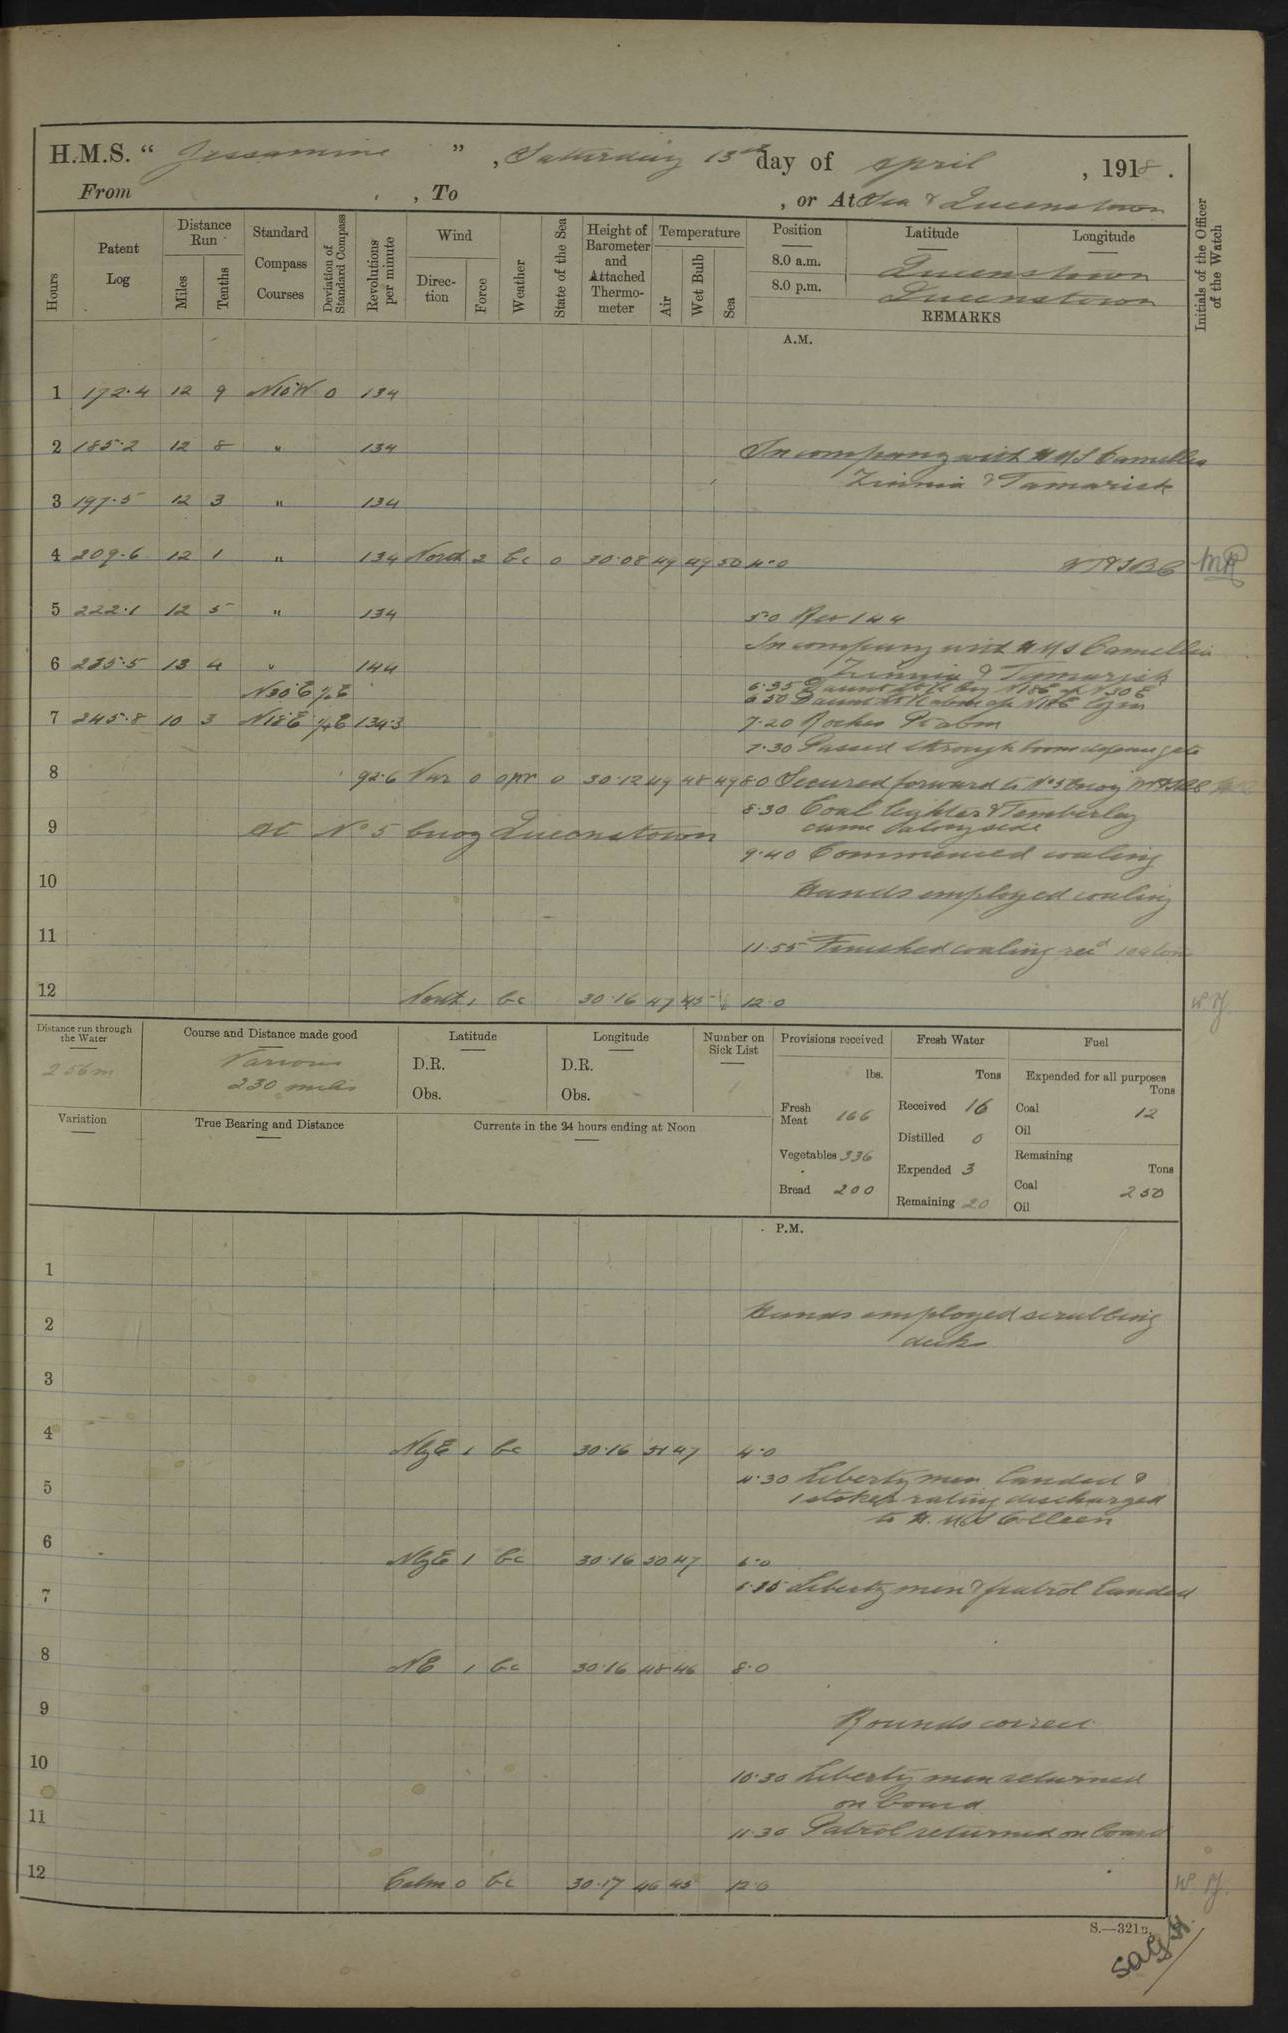 H.M.S. " Jessamine " , Saturday 13th day of April , 1918 .
From , To , or At Sea & Queenstown
Hours
Patent Log
Distance Run
Miles
Tenths
Standard Compass Courses
Deviation of Standard Compass
Revolutions per minute
Wind
Direction
Force
Weather
State of the Sea
Height of Barometer and Attached Thermometer
Temperature
Air
Wet Bulb
Sea
Position
8.0 a.m.
8.0 p.m.
Latitude
Longitude
Queenstown
Queenstown
REMARKS
Initials of the Officer of the Watch
A.M.
1 172.4 12 9 N10°W 0 134
2 185.2 12 8 " 134 In company with HMS Camellia
Zinnia & Tamarisk
3 197.5 12 3 " 134
4 209.6 12 1 " 134 North 2 bc 0 30.08 49 49 50 4.0
5 222.1 12 5 " 134 5.0 Rev 144
In company with HMS Camellia
6 235.5 13 4 " 144 Zinnia & Tamarisk
N30°E
7 245.8 10 3 N18°E 134.3 7.20 Roches Pt abm
7.30 Passed through boom defence gate
8 92.6 Var 0 opr 0 30.12 49 48 49 8.0 Secured forward to No 5 buoy
8.30 Coal lighter & Temberley
came alongside
9 At No 5 buoy Queenstown
9.40 Commenced coaling
10 Hands employed coaling
11 11.55 Finished coaling recd 104 tons
12 North 1 bc 30.16 47 45 12.0
Distance run through the Water
256m
Course and Distance made good
Various
230 miles
Latitude
D.R.
Obs.
Longitude
D.R.
Obs.
Number on Sick List
1
Variation
True Bearing and Distance
Currents in the 24 hours ending at Noon
Provisions received
lbs.
Fresh Meat 166
Vegetables 336
Bread 200
Fresh Water
Tons
Received 16
Distilled 0
Expended 3
Remaining 20
Fuel
Expended for all purposes
Tons
Coal 12
Oil
Remaining
Tons
Coal 250
Oil
P.M.
1
2 Hands employed scrubbing
decks
3
4 NbyE 1 bc 30.16 51 47 4.0
4.30 Liberty men landed &
5 1 stoker rating discharged
to H.M.S Colleen
6 NbyE 1 bc 30.16 50 47 6.0
7 Liberty men & patrol landed
8 NE 1 bc 30.16 48 46 8.0
9 Rounds correct
10 10.30 Liberty men returned
on board
11 11.30 Patrol returned on board
12 Calm 0 bc 30.17 46 45 12.0
S.—321B.